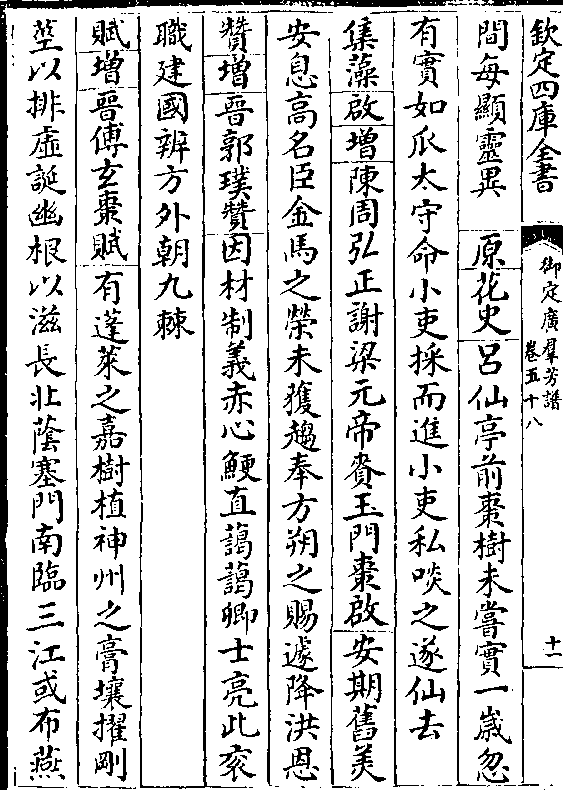 欽定四庫全書
御定廣群芳譜
卷五十八
十一
間每顯靈異　原花史呂仙亭前棗樹未嘗實一歲忽
有實如瓜太守命小吏採而進小吏私啖之遂仙去
集藻啟增陳周弘正謝梁元帝賚玉門棗啟安期舊美
安息高名臣金馬之榮未獲趨奉方朔之賜遽降洪恩
贊增晉郭璞贊因材制義赤心鯁直藹藹卿士亮此衮
職建國辨方外朝九棘
賦增晉傅玄棗賦有蓬萊之嘉樹植神州之膏壤擢剛
莖以排虛誕幽根以滋長北蔭塞門南臨三江或布燕